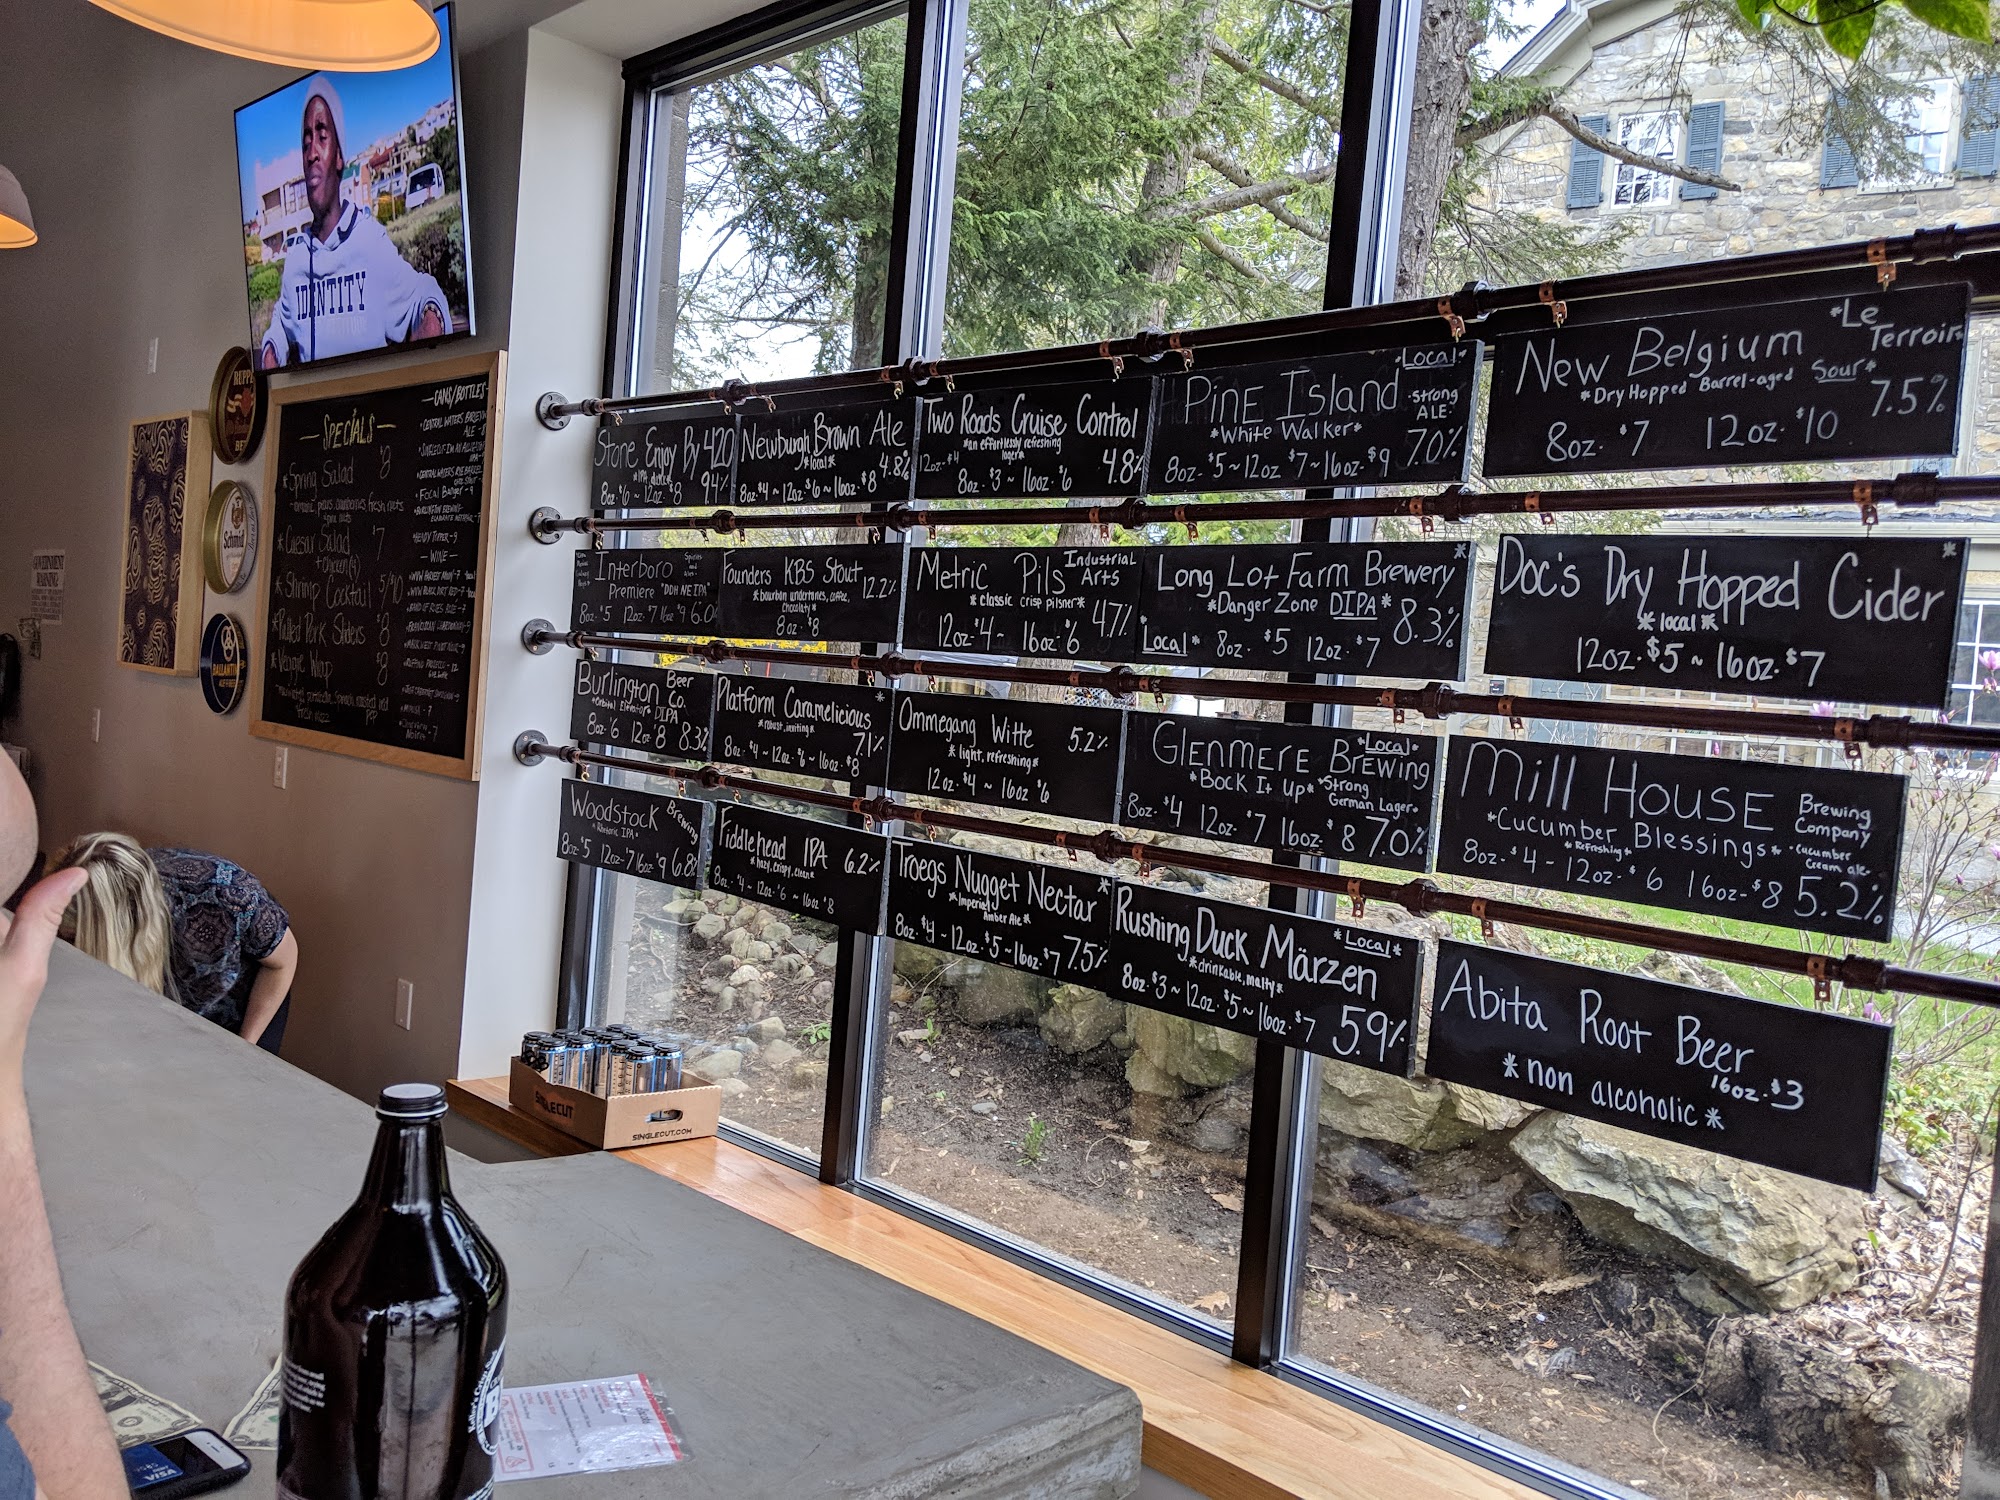 IDENTITY
RUPPE
Schmidt
BALLANTINE
GOVERNMENT
WARNING:
— SPECIALS —
*Spring Salad $8
*Caesar Salad $7
+ Chicken (4)
*Shrimp Cocktail 5/10
*Pulled Pork Sliders $8
*Veggie Wrap $8
— CANS/BOTTLES —
FOCAL BANGER - 9
HEADY TOPPER - 9
— WINE —
Stone Enjoy By 420
8oz $6 ~ 12oz $8 9.4%
Newburgh Brown Ale
*local* 4.8%
8oz $4 ~ 12oz $6 ~ 16oz $8
Two Roads Cruise Control
*an effortlessly refreshing
lager*
12oz·$4 4.8%
8oz $3 ~ 16oz $6
Pine Island *Local*
·strong
ALE·
*White Walker*
8oz·$5 ~ 12oz $7 ~ 16oz·$9 7.0%
New Belgium *Le
Terroir*
*Dry Hopped Barrel-aged Sour*
8oz·$7 12oz·$10 7.5%
Interboro
Premiere "DDH NE IPA"
8oz $5 12oz $7 16oz $9 6.0
Founders KBS Stout 12.2%
*bourbon undertones, coffee,
chocolaty*
8oz·$8
Metric Pils Industrial
Arts
*classic crisp pilsner*
12oz·$4 ~ 16oz·$6 4.7%
Long Lot Farm Brewery *
*Danger Zone DIPA* 8.3%
*Local* 8oz·$5 12oz·$7
Doc's Dry Hopped Cider *
*local*
12oz·$5 ~ 16oz·$7
Burlington Beer
Co.
*Orbital Elevator* DIPA
8oz·$6 12oz·$8 8.3%
Platform Caramelicious *
*robust, inviting* 7.1%
8oz·$4 ~ 12oz·$6 ~ 16oz·$8
Ommegang Witte 5.2%
*light, refreshing*
12oz·$4 ~ 16oz·$6
Glenmere Brewing *Local*
*Bock It Up* *Strong
German Lager*
8oz·$4 12oz·$7 16oz·$8 7.0%
Mill House Brewing
Company
*Cucumber Blessings*
*Refreshing* ·Cucumber
Cream ale·
8oz·$4 ~ 12oz·$6 16oz·$8 5.2%
Woodstock Brewing
*Rhetoric IPA*
8oz·$5 12oz·$7 16oz·$9 6.8%
Fiddlehead IPA 6.2%
*hazy, crispy, clean*
8oz·$4 ~ 12oz·$6 ~ 16oz $8
Troegs Nugget Nectar *
*Imperial
Amber Ale*
8oz·$4 ~ 12oz·$5 ~ 16oz·$7 7.5%
Rushing Duck Märzen *Local*
*drinkable, malty*
8oz·$3 ~ 12oz·$5 ~ 16oz·$7 5.9%
Abita Root Beer
16oz·$3
*non alcoholic*
SINGLECUT
SINGLECUT.COM
VISA